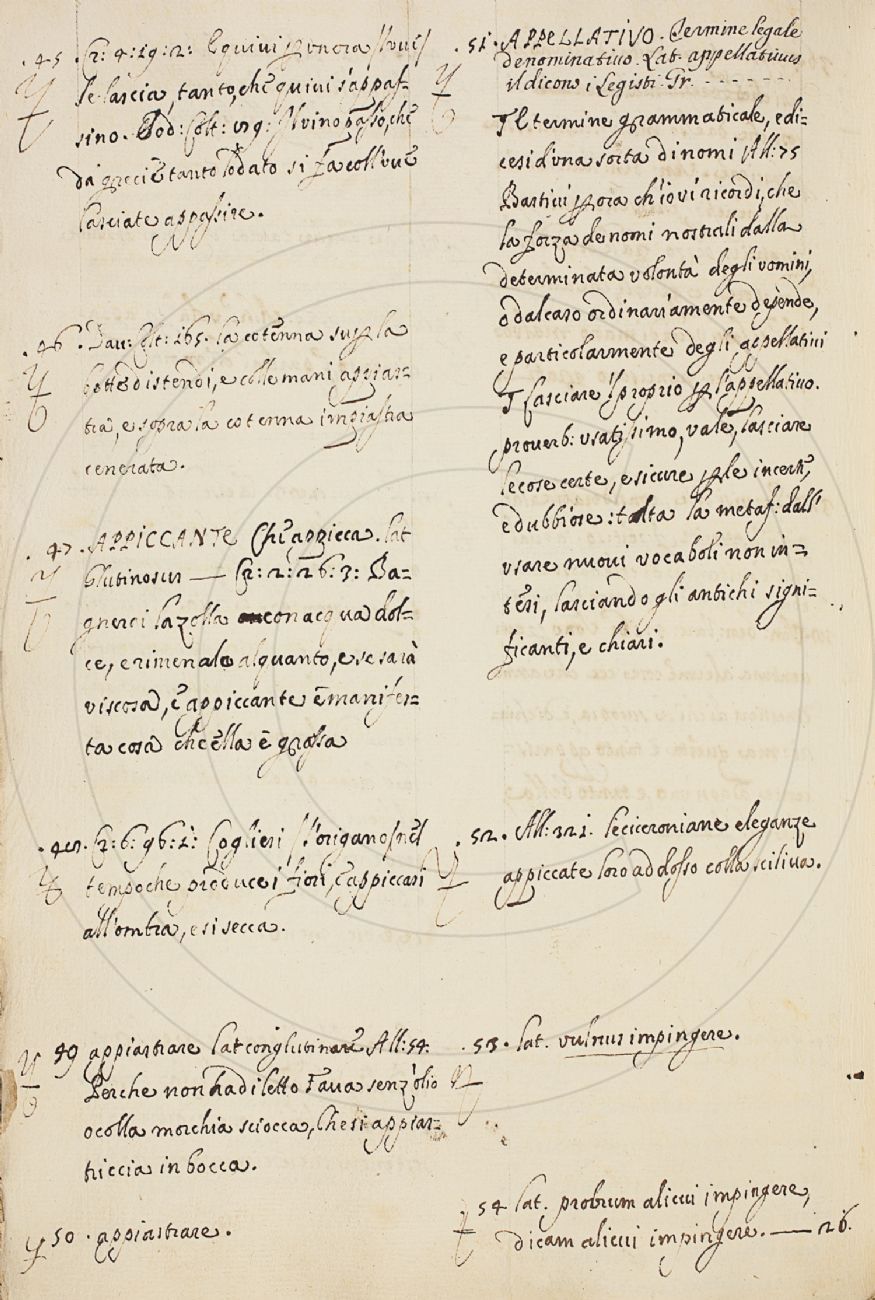 .45. Cr: 4: 19: 2: E quivi p
le lascia, tanto, che quivi s'appas=
sino. Sod: Colt: 119: Il vino passo, che
da' greci è tanto lodato si fa coll'uve
lasciate appassire.
.46. Dav: Colt: 165. la cotenna su p la
botte distendi, e colle mani appias=
tra, e sopra la cotenna impiastra
cenerata.
.47. APPICCANTE Che appicca. lat
Glutinosus — Cr: 2: 26: 3: Ba=
gnerai la zolla con acqua dol=
ce, e rimenale alquanto, e se sarà
viscosa, e appiccante è manifes=
ta cosa che ella è grassa
.48. Cr: 6: 96: 1: Cogliesi (l'origano) nel
tempo che produce i fiori, e appiccasi
all'ombra, e si secca.
49 appiastrare lat conglutinare All: 54:
Perche non ha diletto Fava senz'olio
o colla morchia sciocca, Che si appias=
triccia in bocca.
50. appiastrare.
.51. APPELLATIVO. Termine legale
denominativo. Lat. appellativus
il dicono i Legisti. Gr. - - - - - - -
It termine grammaticale, e di=
cesi d'una sorta di nomi All: 75
Bastivi p ora ch'io vi ricordi, che
la forza de nomi nostrali dalla
determinata volontà degli uomini,
o dal caso ordinariamente depende,
e particolarmente degli appellativi
I lasciare il proprio p l'appellativo.
proverb: usatissimo, vale, lasciare
le cose certe, e sicure p le incerte,
e dubbiose: tolta la metaf: dall'
usare nuovi vocaboli non in=
tesi, lasciando gli antichi signi=
ficanti, e chiari.
.52. All: 321. le ciceroniane eleganze
appiccate loro addosso colla sciliva.
.53. lat. vulnus impingere.
54 lat. probrum alicui impingere,
dicam alicui impingere. — 26.